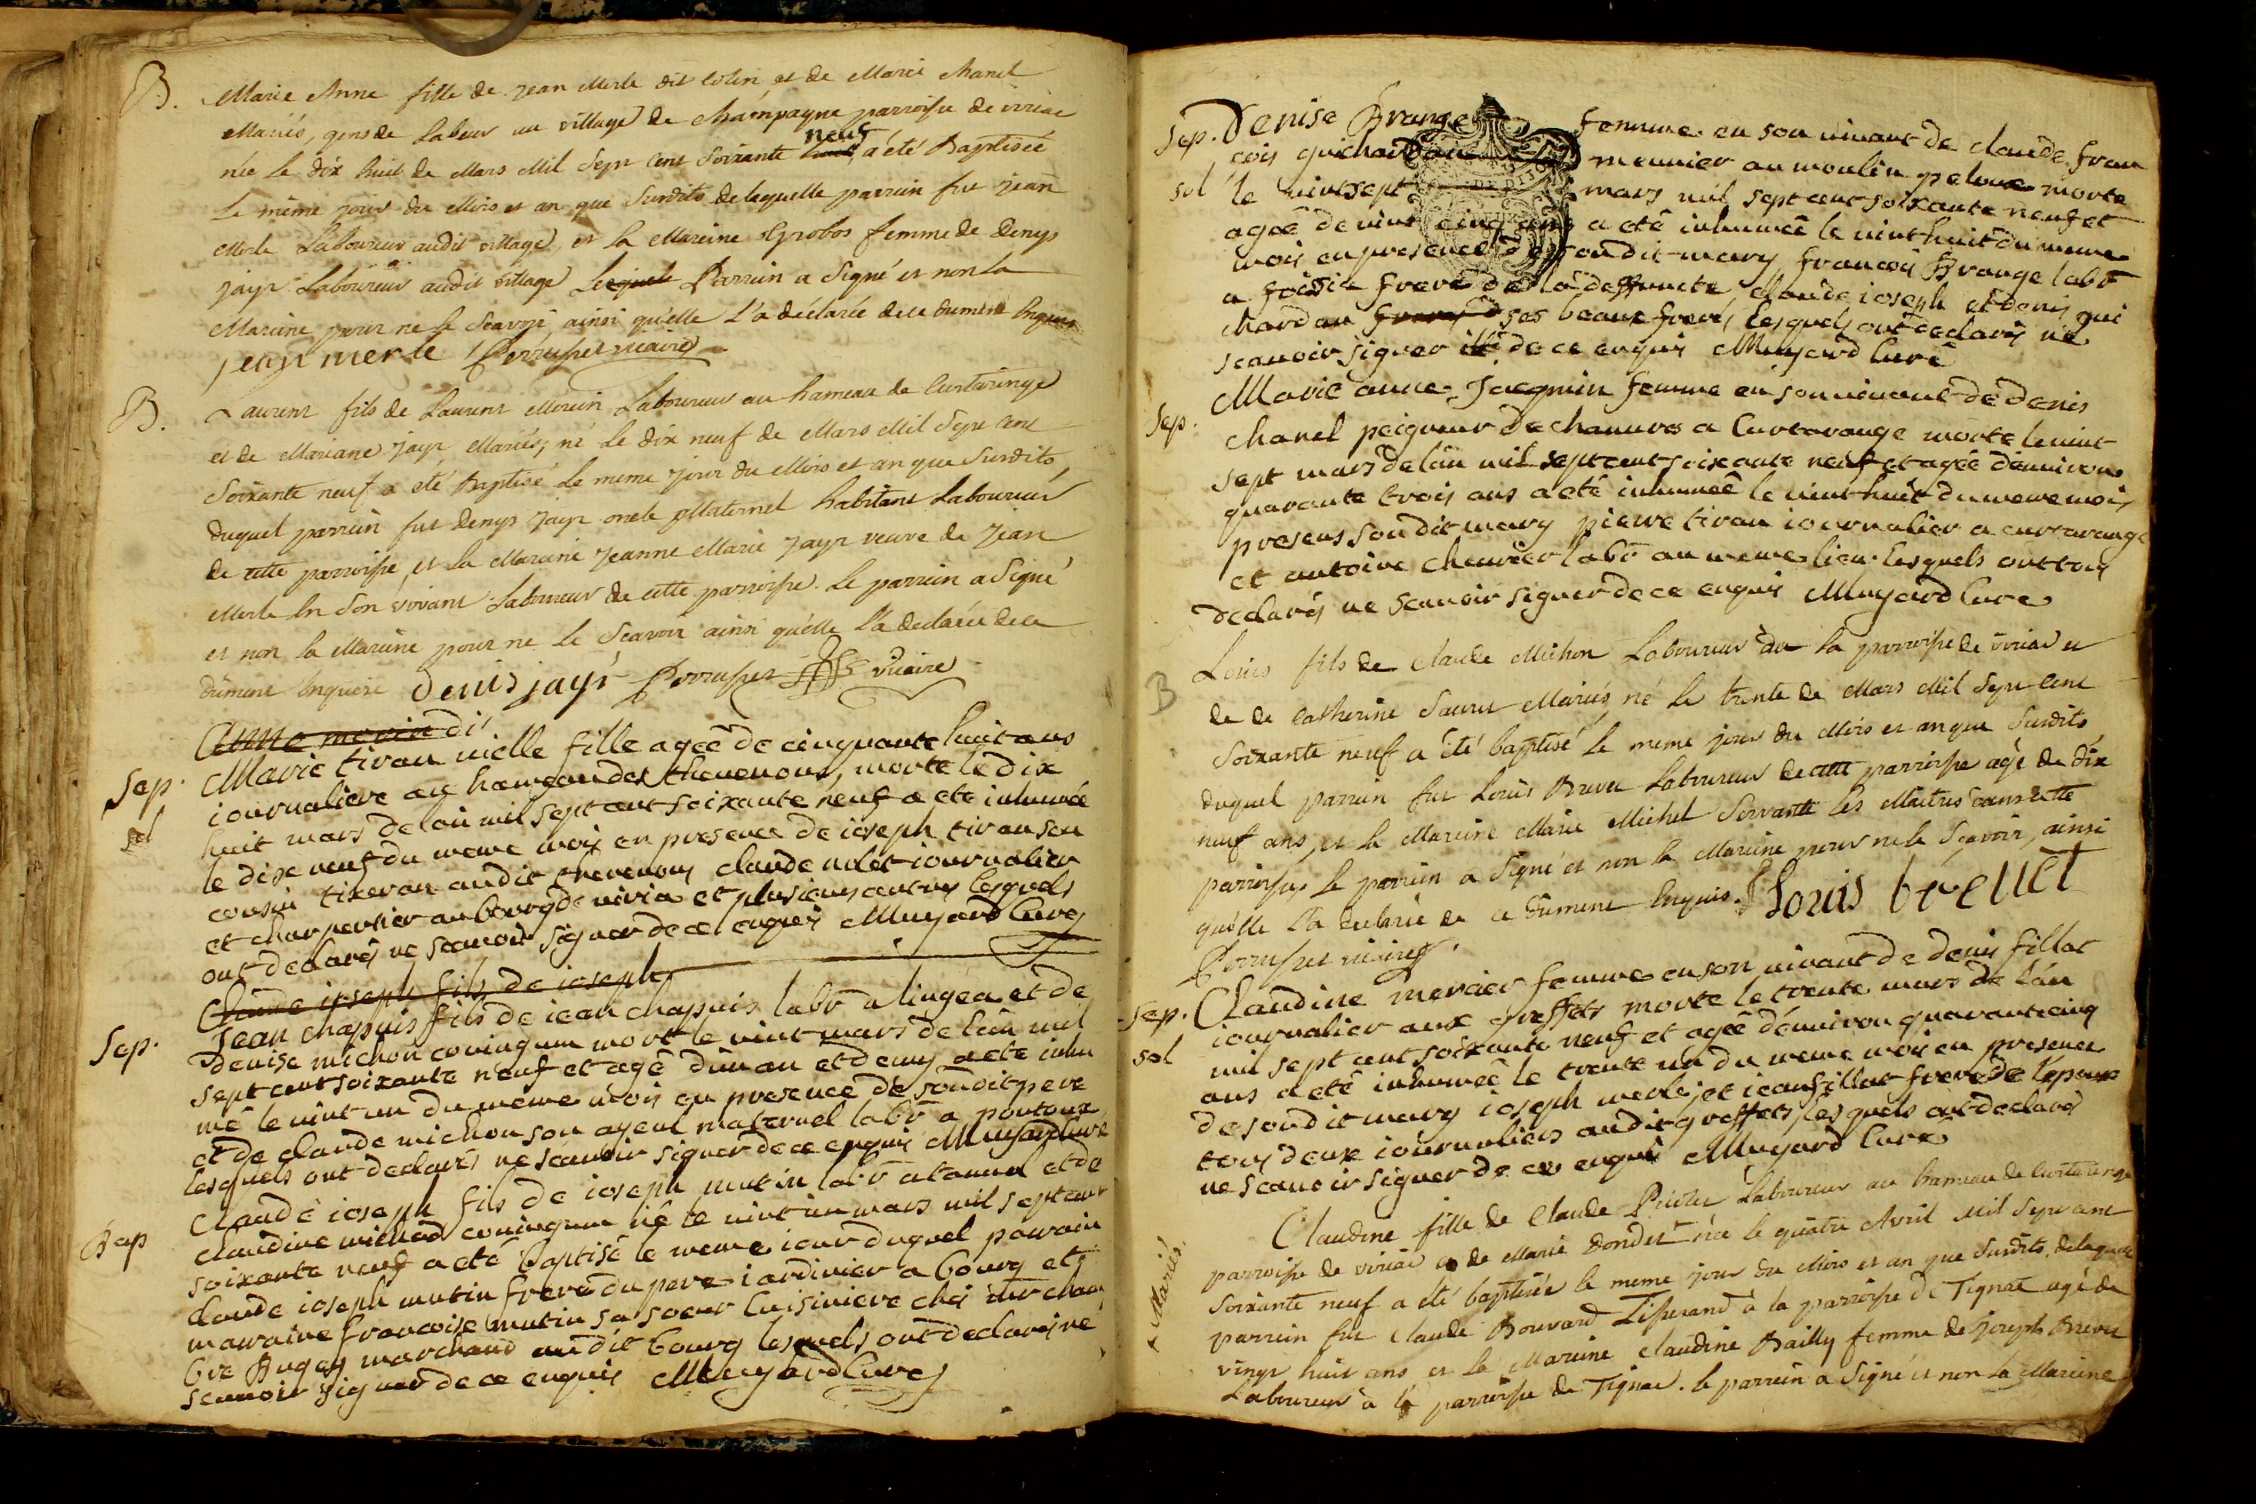 B. Marie Anne fille de jean Merle dit Colin et de Marie chanel
Mariés, gens de Labeur au village de champagne parroisse de viriac
née le dix huit de Mars Mil Sept Cent Soixante neuf a été Baptisée
Le même jour du Mois et an que Surdits de laquelle parrein fut jean
Merle Laboureur audit village et la Mareine Grobos femme de Denys
jayr Laboureur audit village Lequel Parrein a Signé et non la
Mareine pour ne le Scavoir ainsi qu'elle L'a déclarée de ce dument Enquise
jean merle Perrusset vicaire
B. Laurent fils de Laurent Morin Laboureur au hameau de Curtaringe
et de Mariane jayr Mariés, né Le dix neuf de Mars Mil Sept Cent
Soixante neuf a été Baptisé Le meme jour du Mois et an que Surdits,
duquel parrein fut denys jayr oncle Maternel habitant Laboureur
de cette parroisse, et la Mareine jeanne Marie jayr veuve de jean
Merle En Son vivant Laboureur de cette parroisse. Le parrein a Signé
et non la Mareine pour ne Le Scavoir ainsi qu'elle l'a declarée de ce
dûment Enquise denis jayr Perrusset vicaire
Anne morin di
Sep. Marie tiran vielle fille agée de cinquante huit ans
iournaliere au hameau des thevenons, morte le dix
sol huit mars de l'an mil sept cent soixante neuf a ete inhumée
le dixe neuf du meme mois en presence de ioseph tiran son
cousin tixeran audit thevenons claude nilet iournalier
et charpentier au bourg de viria et plusieurs autres lesquels
ont declarés ne scavoir signer de ce enquis Muyard Curé
Claude ioseph fils de ioseph
Sep. Jean chapuis fils de iean chapuis labr a lingea et de
denise michon coniugum mort le vint mars de l'an mil
sept cent soixante neuf et agé d'un an et demy a ete inhu
mé le vint un du meme mois en presence de son dit pere
et de claude michon son ayeul maternel labr a poutoux
lesquels ont declarés ne scavoir signer de ce enquis Muyard Curé
Bap Claude ioseph fils de ioseph mutin labr a tanud et de
claudine michod coniugum né le vint un mars mil sept cent
soixante neuf a eté baptisé le meme iour duquel parrain
claude ioseph mutin frere du pere iardinier a bourg et
marraine francoise mutin sa soeur cuisiniere ches
marchand audit bourg lesquels ont declarés ne
scavoir signer de ce enquis Muyard Curé
Sep. Denise Brange femme en son vivant de claude fran
cois guichardan meunier au moulin peloux morte
sol le vint sept mars mil sept cent soixante neuf et
agée de vint cinq ans a eté inhumée le vint huit du meme
mois en presence de son dit mary francois Brange labr
a foissia frere de la deffuncte claude ioseph et denis gui
chardan freres ses beaux freres, lesquels ont declarés ne
scavoir signer de ce enquis Muyard Curé
Sep. Marie anne Jacquin femme en son vivant de denis
chanel peigneur de chanures a Curtarange morte le vint
sept mars de l'an mil sept cent soixante neuf et agée d'environ
quarante trois ans a eté inhumée le vint huit du meme mois,
presens son dit mary pierre tiran iournalier a curtarange
et antoine chevrier labr au meme lieu. lesquels ont tous
declarés ne scavoir signer de ce enquis Muyard Curé
B Louis fils de Claude Michon Laboureur de la parroisse de viriac et
de de Catherine Sauret Mariés né le trente de Mars Mil Sept Cent
Soixante neuf a été baptisé le meme jour du Mois et an que Surdits
duquel parrein fut Louis Brevet Laboureur de cette parroisse agé de dix
neuf ans, et la Mareine Marie Michel Servante Les Maitres dans cette
parroisse, Le parrein a Signé et non la Mareine pour ne le Scavoir, ainsi
qu'elle l'a déclarée de ce dument Enquis. Louis brevet
Perrusset vicaire
Sep. Claudine mercier femme en son vivant de denis fillat
iournalier aux greffets morte le trente mars de l'an
sol mil sept cent soixante neuf et agée d'environ quarante cinq
ans a eté inhumée le trente un du meme mois en presence
de son dit mary ioseph merle, et iean fillat frere de l'epoux
tous deux iournaliers audit greffets, lesquels ont declarés
ne scavoir signer de ce enquis Muyard Curé
Claudine fille de Claude Laboureur au hameau de Curtaringe
parroisse de viriac et de Marie Dondet née le quatre Avril Mil Sept Cent
+ Mariés.
Soixante neuf a été baptisée le meme jour du Mois et an que Surdits, de laquelle
parrein fut Claude Bouvard Tisserand à la parroisse de Tignat agé de
vingt huit ans et la Mareine Claudine Bailly femme de joseph Brevet
Laboureur à la parroisse de Tignac. le parrein a Signé et non la Mareine